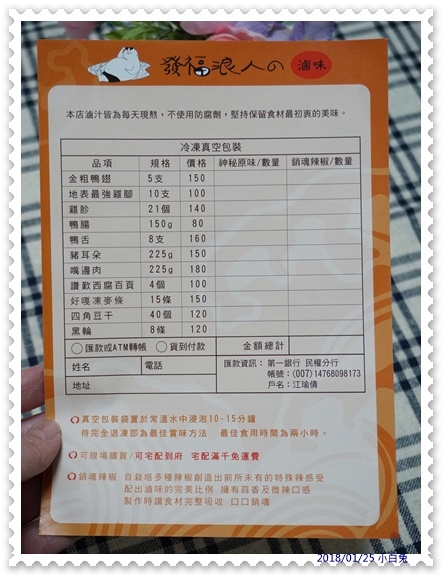 發福浪人の 滷味
本店滷汁皆為每天現熬，不使用防腐劑，堅持保留食材最初衷的美味。
冷凍真空包裝
品項 規格 價格 神秘原味/數量 銷魂辣椒/數量
金粗鴨翅 5支 150
地表最強雞腳 10支 100
雞胗 21個 140
鴨腸 150g 80
鴨舌 8支 160
豬耳朵 225g 150
嘴邊肉 225g 180
讚歎西腐百頁 4個 100
好嘎凍麥條 15條 150
四角豆干 40個 120
黑輪 8條 120
○匯款或ATM轉帳 ○貨到付款 金額總計
姓名 電話 匯款資訊：第一銀行 民權分行
帳號：(007)14768098173
地址 戶名：江瑜倩
真空包裝袋置於常溫水中浸泡10-15分鐘
待完全退凍即為最佳賞味方法 最佳食用時間為兩小時。
可現場購買/可宅配到府 宅配滿千免運費
銷魂辣椒 自栽培多種辣椒創造出前所未有的特殊辣感受
配出滷味的完美比例 擁有蒜香及微辣口感
製作時讓食材完整吸收 口口銷魂
2018/01/25 小白兔